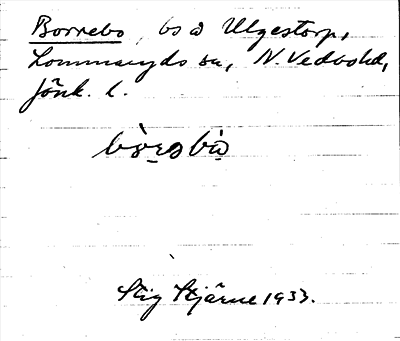 Borrebo, bs å Ulgestorp,
Lommaryds sn, N. Vedbohd,
Jönk. l.
Stig Stjärne 1933.